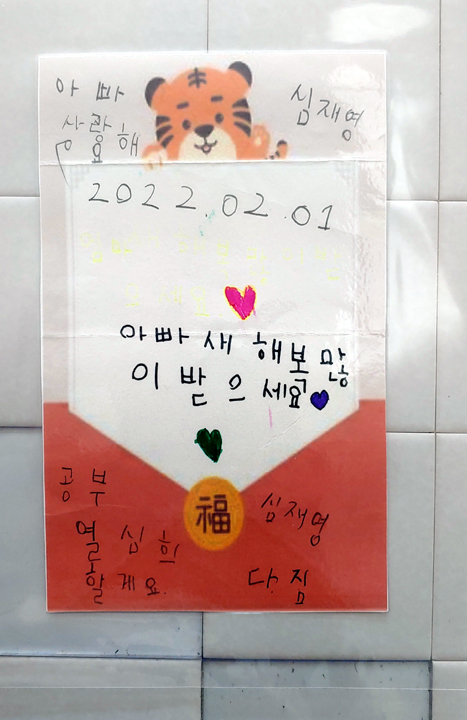 아빠
사랑해
요
심재영
2022.02.01
아빠 새해복 많
이 받으세요
福
공부
열심히
할게요.
심재영
다짐